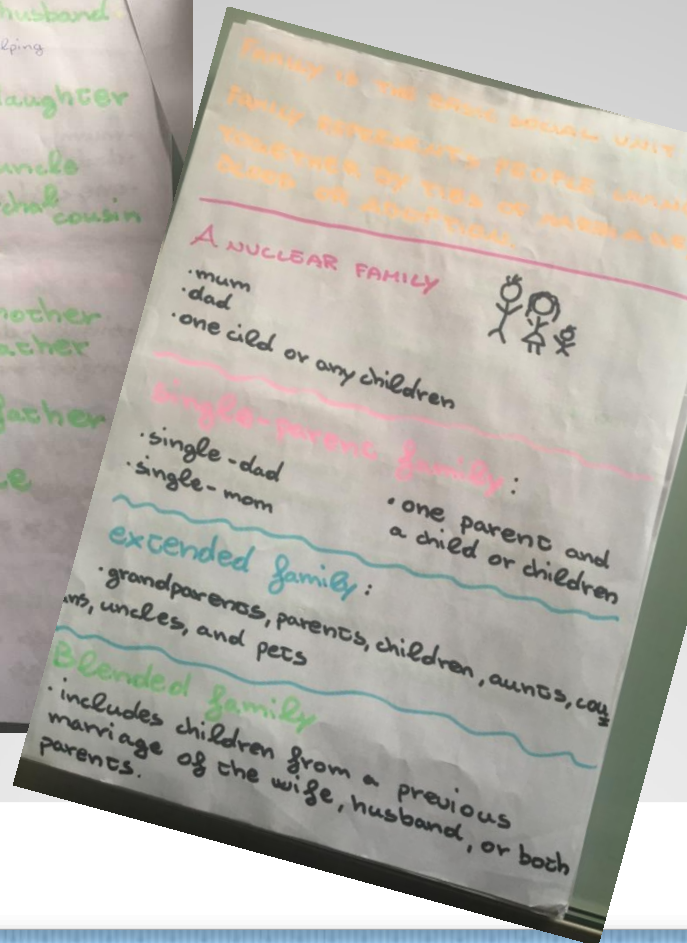 husband
lping
daughter
uncle
cousin
mother
father
father
FAMILY IS THE BASIC SOCIAL UNIT
FAMILY REPRESENTS PEOPLE
TOGETHER BY TIES OF MARRIAGE,
BLOOD OR ADOPTION.
A NUCLEAR FAMILY
·mum
·dad
·one cild or any children
single-parent family:
·single-dad
·single-mom
·one parent and
a child or children
extended family:
·grandparents, parents, children, aunts, cou
ins, uncles, and pets
Blended family
·includes children from a previous
marriage of the wife, husband, or both
parents.